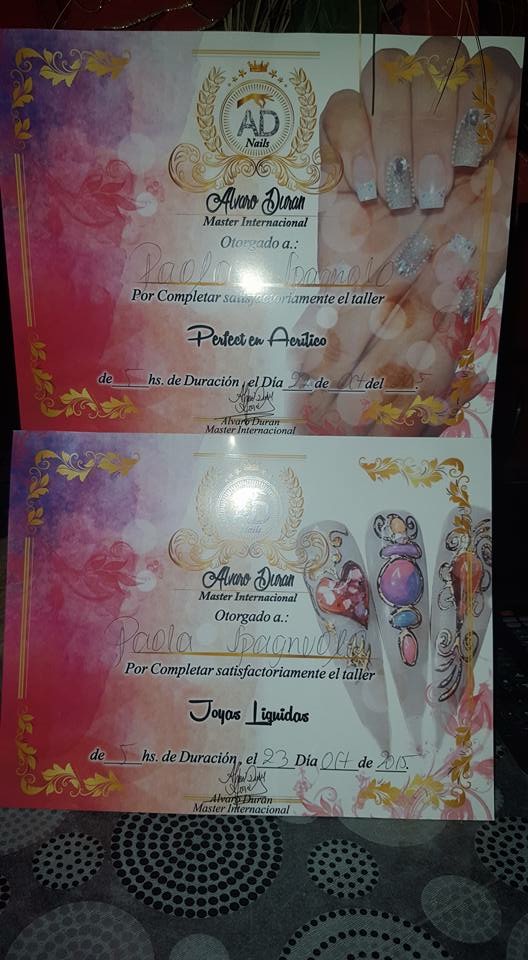 AD
Nails
Alvaro Duran
Master Internacional
Otorgado a.:
Paola
Por Completar satisfactoriamente el taller
Perfect en Acrílico
de 5 hs. de Duración, el Día 22 de Oct del
Alvaro Duran
Master Internacional
AD
Nails
Alvaro Duran
Master Internacional
Otorgado a.:
Paola
Por Completar satisfactoriamente el taller
Joyas Liquidas
de 5 hs. de Duración, el 23 Día Oct de 2015.
Alvaro Duran
Master Internacional